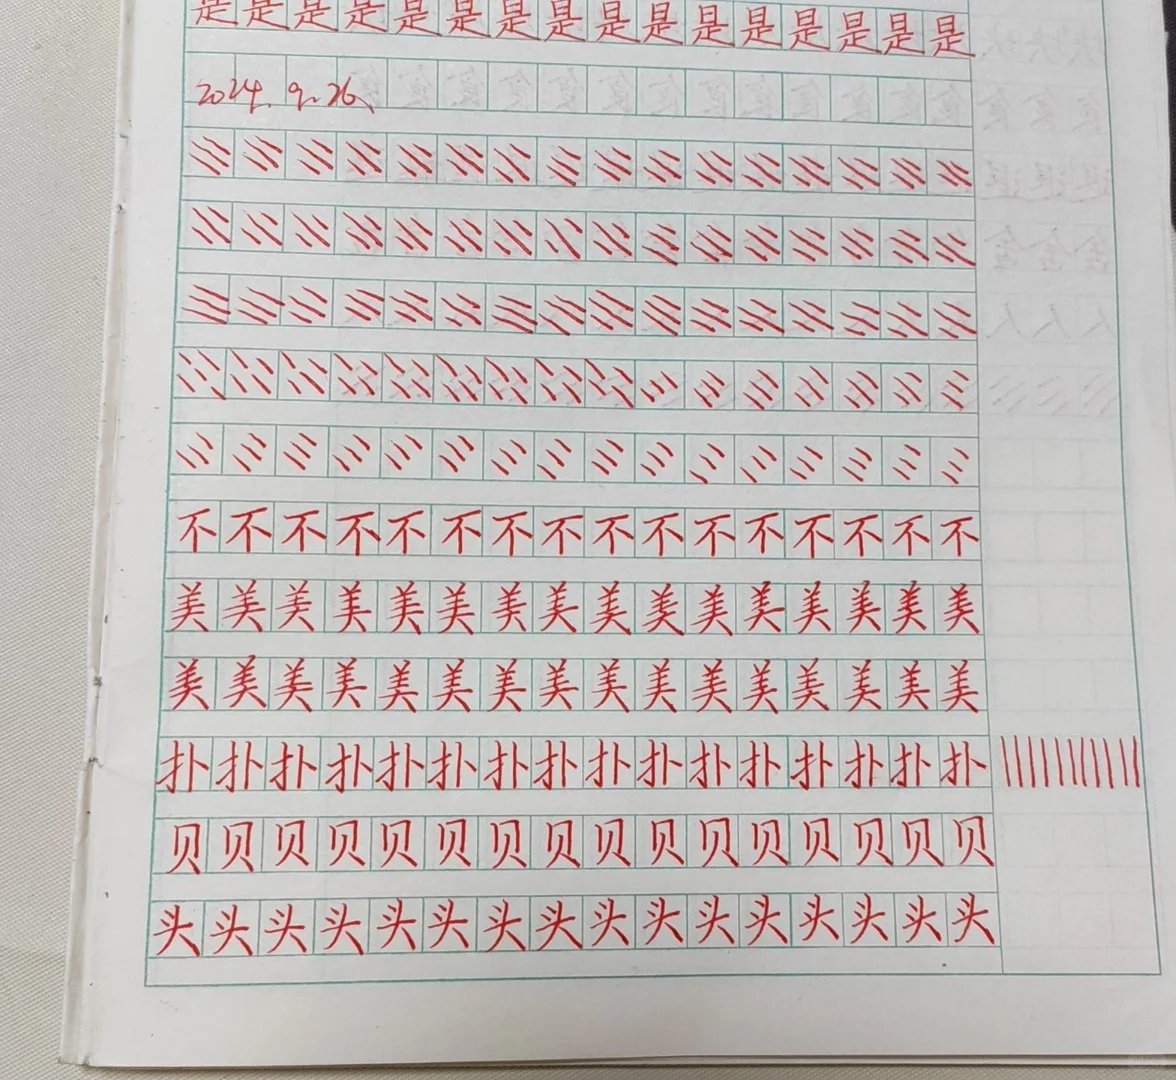 是是是是是是是是是是是是是是是是
2024.9.26、
不不不不不不不不不不不不不不不不
美美美美美美美美美美美美美美美美
美美美美美美美美美美美美美美美美
扑扑扑扑扑扑扑扑扑扑扑扑扑扑扑扑
贝贝贝贝贝贝贝贝贝贝贝贝贝贝贝贝
头头头头头头头头头头头头头头头头